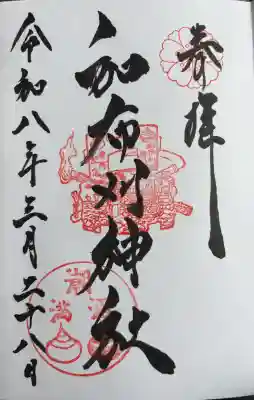 奉拝
和布刈神社
令和八年三月二十八日